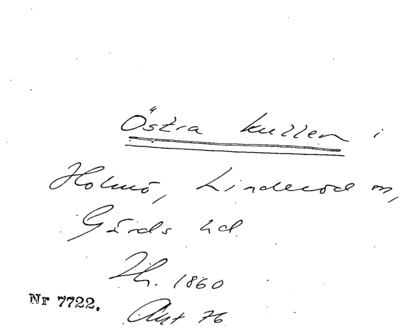 Östra kullen i
Holmö, Linderöd sn,
Gärds hd
Lh. 1860
Nr 7722.
Avst 76